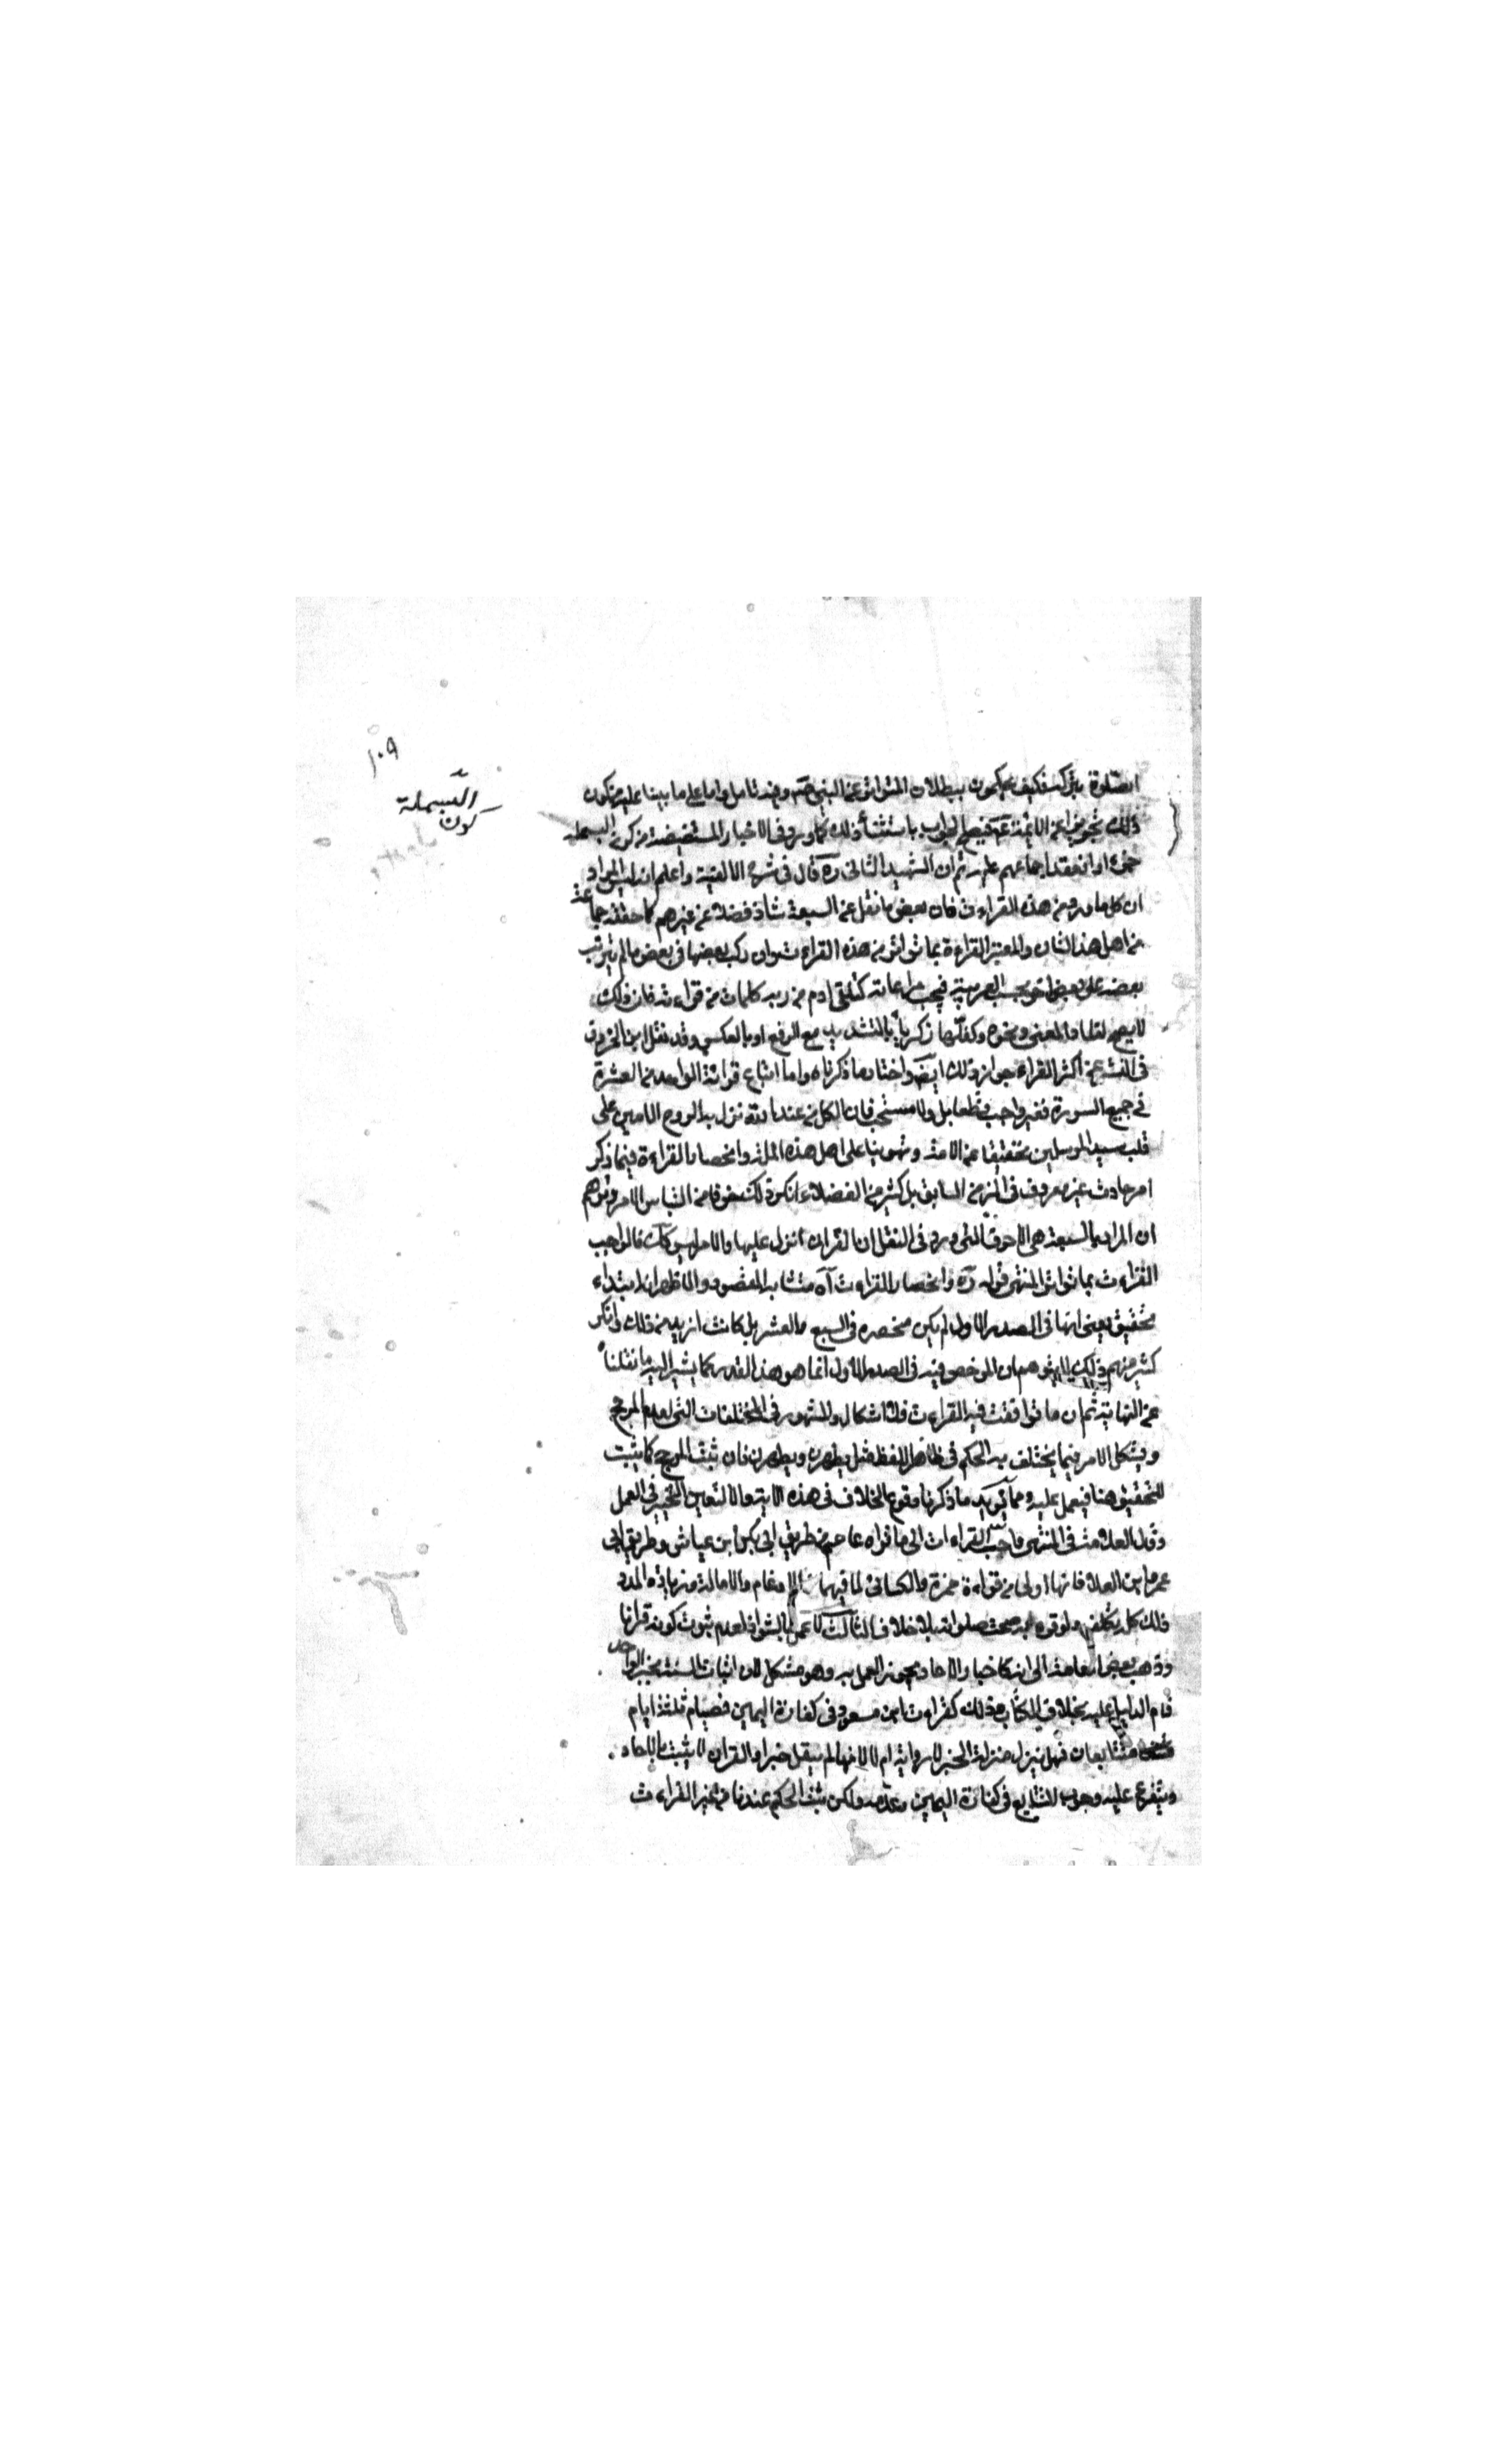 ١٠٩
البسملة
كون
الصلوة بتركه فكيف يحكمون ببطلان المتواتر عن النبي ص وفيه تامل واما على ما بينا عليه من كون
ذلك تجويزا عن الائمة ع فيصح الجواب باستثناء ذلك كما ورد في الاخبار المستفيضة من كون البسملة
جزء او انعقد اجماعهم عليه ثم ان الشهيد الثاني ره قال في شرح الالفية واعلم انه ليس المراد
ان كل ما ورد من هذه القراءت فان بعض ما نقل عن السبعة شاذ فضلا عن غيرهم كما حققه جماعة
من اهل هذا الشان والمعتبر القراءة بما تواتر من هذه القراءت وان ركب بعضها في بعض ما لم يترتب
بعضه على بعض اخر بحسب العربية فيجب مراعاته كتلقى ادم من ربه كلمات من قراءته فان ذلك
لا يصح لفساد المعنى ونحوه وكفلها زكريا بالتشديد مع الرفع او بالعكس وقد نقل ابن الجزري
في النشر عن اكثر القراء جواز ذلك ايضا واختار ما ذكرناه واما اتباع قرائة الواحد من العشرة
في جميع السورة فغير واجب قطعا بل ولا مستحب فان الكل من عند الله نزل به الروح الامين على
قلب سيد المرسلين تخفيفا عن الامة وتهوينا على اهل هذه الملة وانحصار القراءة فيما ذكر
امر حادث غير معروف في الزمن السابق بل كثير من الفضلاء انكر ذلك خوفا من التباس الامر وتوهم
ان المراد بالسبعة هي الاحرف التي ورد في النقل ان القران انزل عليها والامر ليس كك فالواجب
القراءت بما تواتر انتهى قوله ره وانحصار القراءت آه متشابه المقصود والظاهر انه ابتداء
تحقيق يعني انها في الصدر الاول لم يكن منحصره في السبع والعشر بل كانت ازيد من ذلك وانكر
كثير منهم ذلك لئلا يتوهم ان المرخص فيه في الصدر الاول انما هو هذا القدر كما يشير اليه ما نقلنا
عن النهاية ثم ان ما توافقت فيه القراءت فلا اشكال والمشهور في المختلفات التخير لعدم المرجح
ويشكل الامر فيما يختلف به الحكم في ظاهر اللفظ مثل يطهرن ويطهرن فان ثبت المرجح كما ثبت
التخفيف هنا فيعمل عليه ومما يؤيد ما ذكرنا وقوع الخلاف في هذه الاية والا لتعين التخيير في العمل
وقال العلامة في المنتهى واحب القراءات الى ما قراه عاصم من طريق ابي بكر بن عياش وطريق ابي
عمرو بن العلا فانها اولى من قراءة حمزة والكسائي لما فيهما من الادغام والامالة وزيادة المد
فذلك كله تكلف ولو قرء به صحت صلوته بلا خلاف الثالث لا عمل بالشواذ لعدم ثبوت كونه قرانا
وذهب بعض العامة الى انه كاخبار الاحاد يجوز العمل به وهو مشكل لان اثبات السنة بخبر الواحد
قام الدليل عليه بخلاف الكتاب وذلك كقراءت ابن مسعود في كفارة اليمين فصيام ثلثة ايام
متتابعات فهل ينزل منزلة الخبر لا رواية ام لا لانها لم ينقل خبرا والقران لا يثبت بالاحاد
ويتفرع عليه وجوب التتابع في كفارة اليمين وعدمه ولكن ثبت الحكم عندنا من غير القراءت